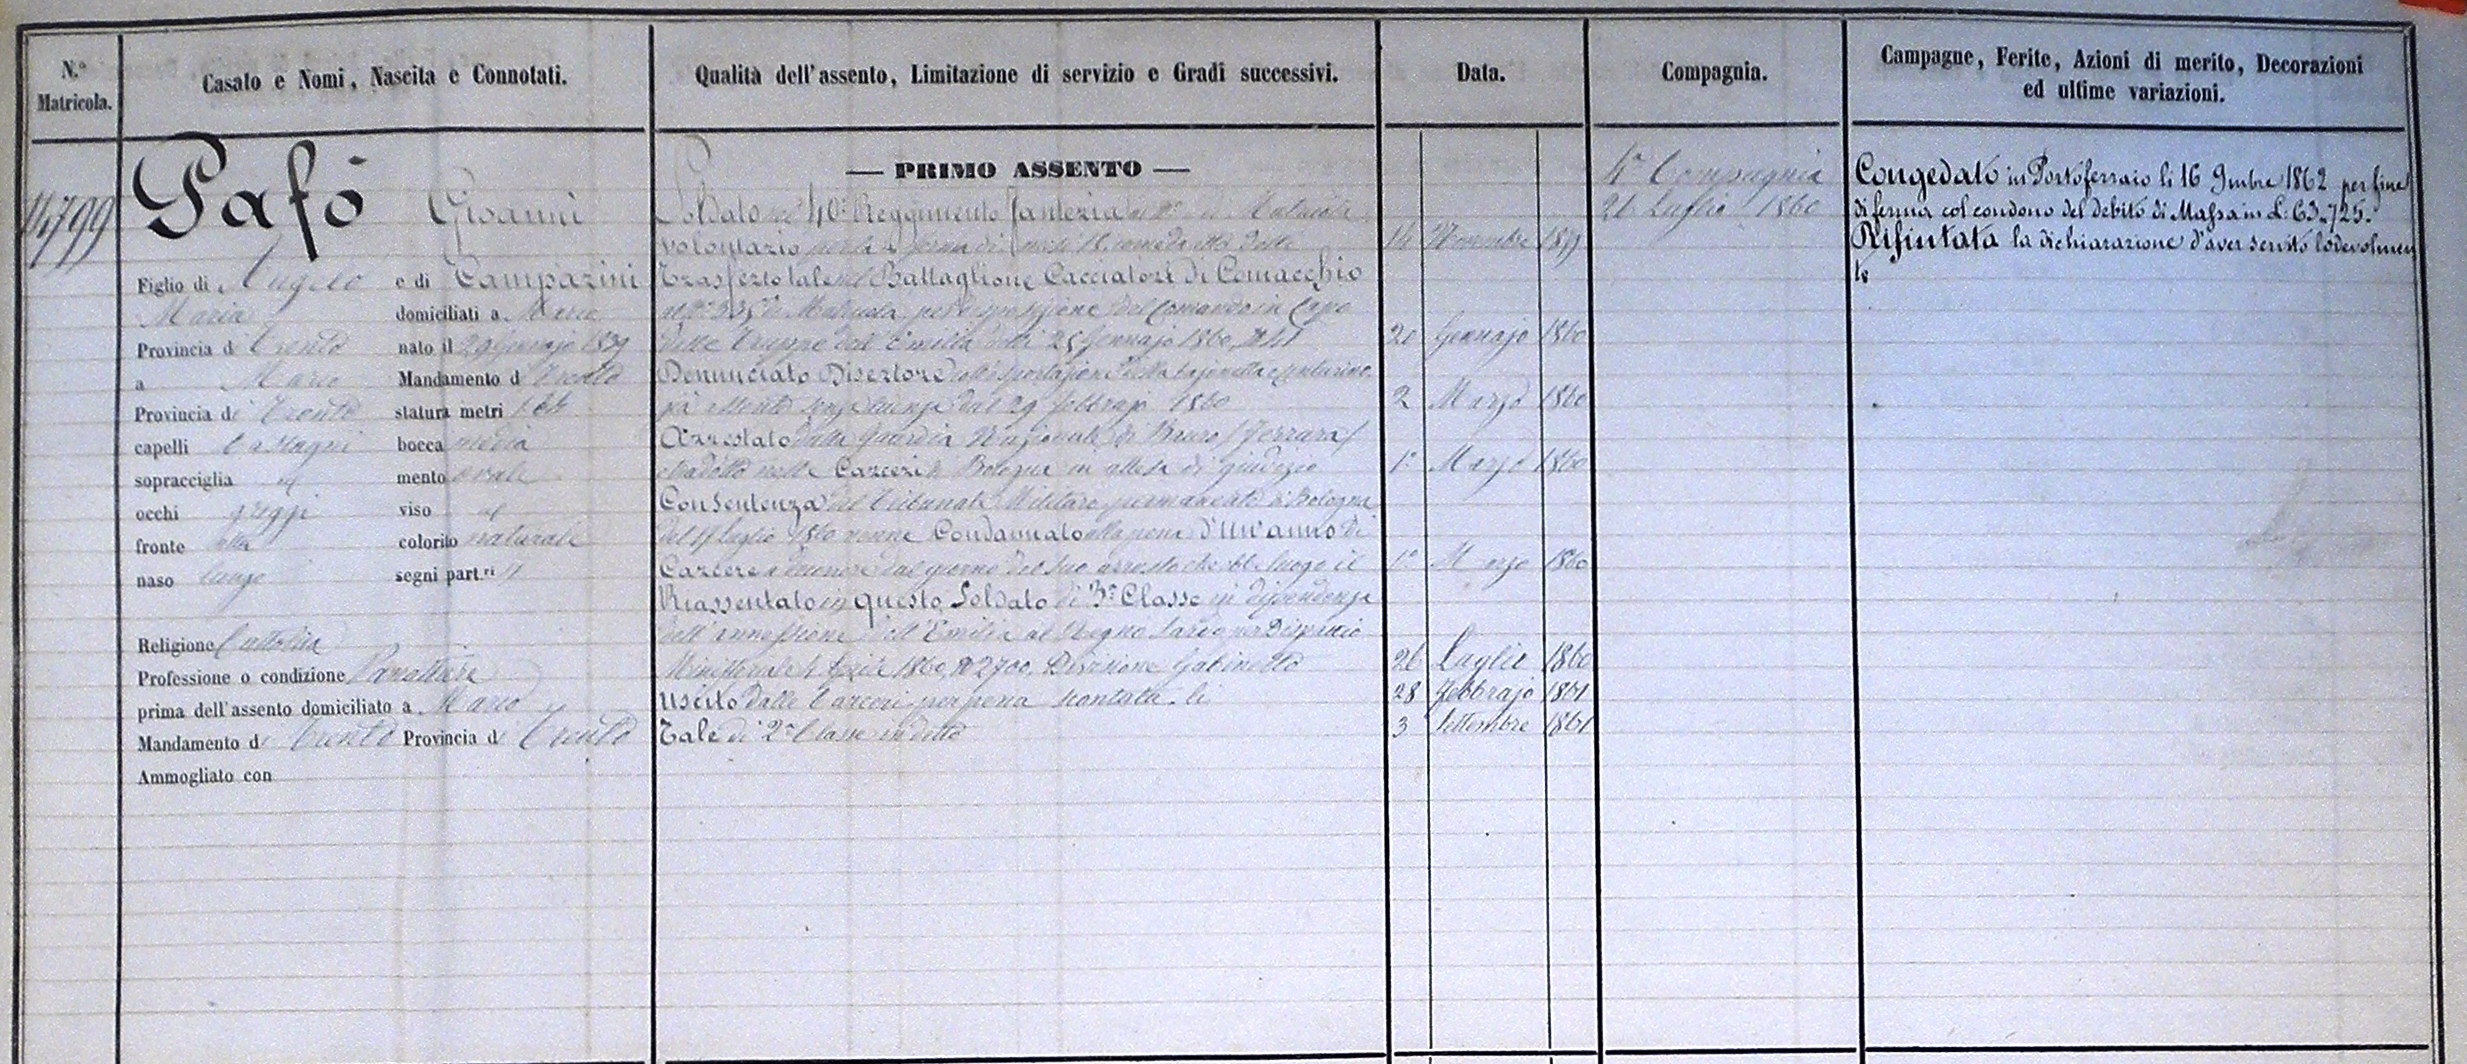 N.º Matricola.
Casato e Nomi, Nascita e Connotati.
Qualità dell'assento, Limitazione di servizio e Gradi successivi.
Data.
Compagnia.
Campagne, Ferite, Azioni di merito, Decorazioni
ed ultime variazioni.
14799
Pafò Giovanni
Figlio di Angelo e di Camparini
Maria domiciliati a Marco
Provincia di Trento nato il 29 Gennajo 1839
a Marco Mandamento d Trento
Provincia di Trento statura metri 1.64
capelli Castagni bocca media
sopracciglia id mento ovale
occhi griggi viso id
fronte alta colorito naturale
naso lungo segni part.ri //
Religione Cattolica
Professione o condizione
prima dell'assento domiciliato a Marco
Mandamento di Trento Provincia di Trento
Ammogliato con
— PRIMO ASSENTO —
Soldato nel 40º Reggimento fanteria al Nº di Matricola
volontario per la ferma di mesi 18 come da atto delli 14 Novembre 1859
Trasferto tale nel Battaglione Cacciatori di Comacchio
al Nº di Matricola per disposizione del Comando in Capo
delle Truppe dell'Emilia delli 25 Gennajo 1860, Nº 41 20 Gennajo 1860
Denunciato Disertore coll'esportazione della bajonetta e centurino
senza licenza dal 29 febbrajo 1860 2 Marzo 1860
Arrestato dalla Guardia Nazionale di (Ferrara)
tradotto nelle Carceri di Bologna in attesa di giudizio 1º Marzo 1860
Con Sentenza del Tribunale Militare permanente di Bologna
del 17 luglio 1860 venne Condannato alla pena d'Un'anno di
Carcere a decorrere dal giorno del suo arresto che ebbe luogo il 1º Marzo 1860
Riassentato in questo Soldato di 3ª Classe in dipendenza
dell'annessione dell'Emilia al Regno Sardo per Dispaccio
Ministeriale 4 Aprile 1860, Nº 2700, Divisione Gabinetto 26 Luglio 1860
Uscito dalle Carceri per pena scontata li 28 Febbrajo 1861
Tale di 2ª Classe in detto 3 Settembre 1861
4ª Compagnia
26 Luglio 1860
Congedato in Portoferraio li 16 9mbre 1862 per fine
di ferma col condono del debito di Massa in L: 63.725.
Rifiutata la dichiarazione d'aver servito lodevolmen
te